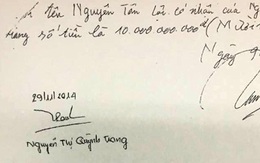 tên Nguyễn Tấn Lộc. có nhận của Ng
bằng số tiền là 10.000.000.000đ (Mười
Ngày 9
29/11/2014
Nguyễn Thị Quỳnh Trang